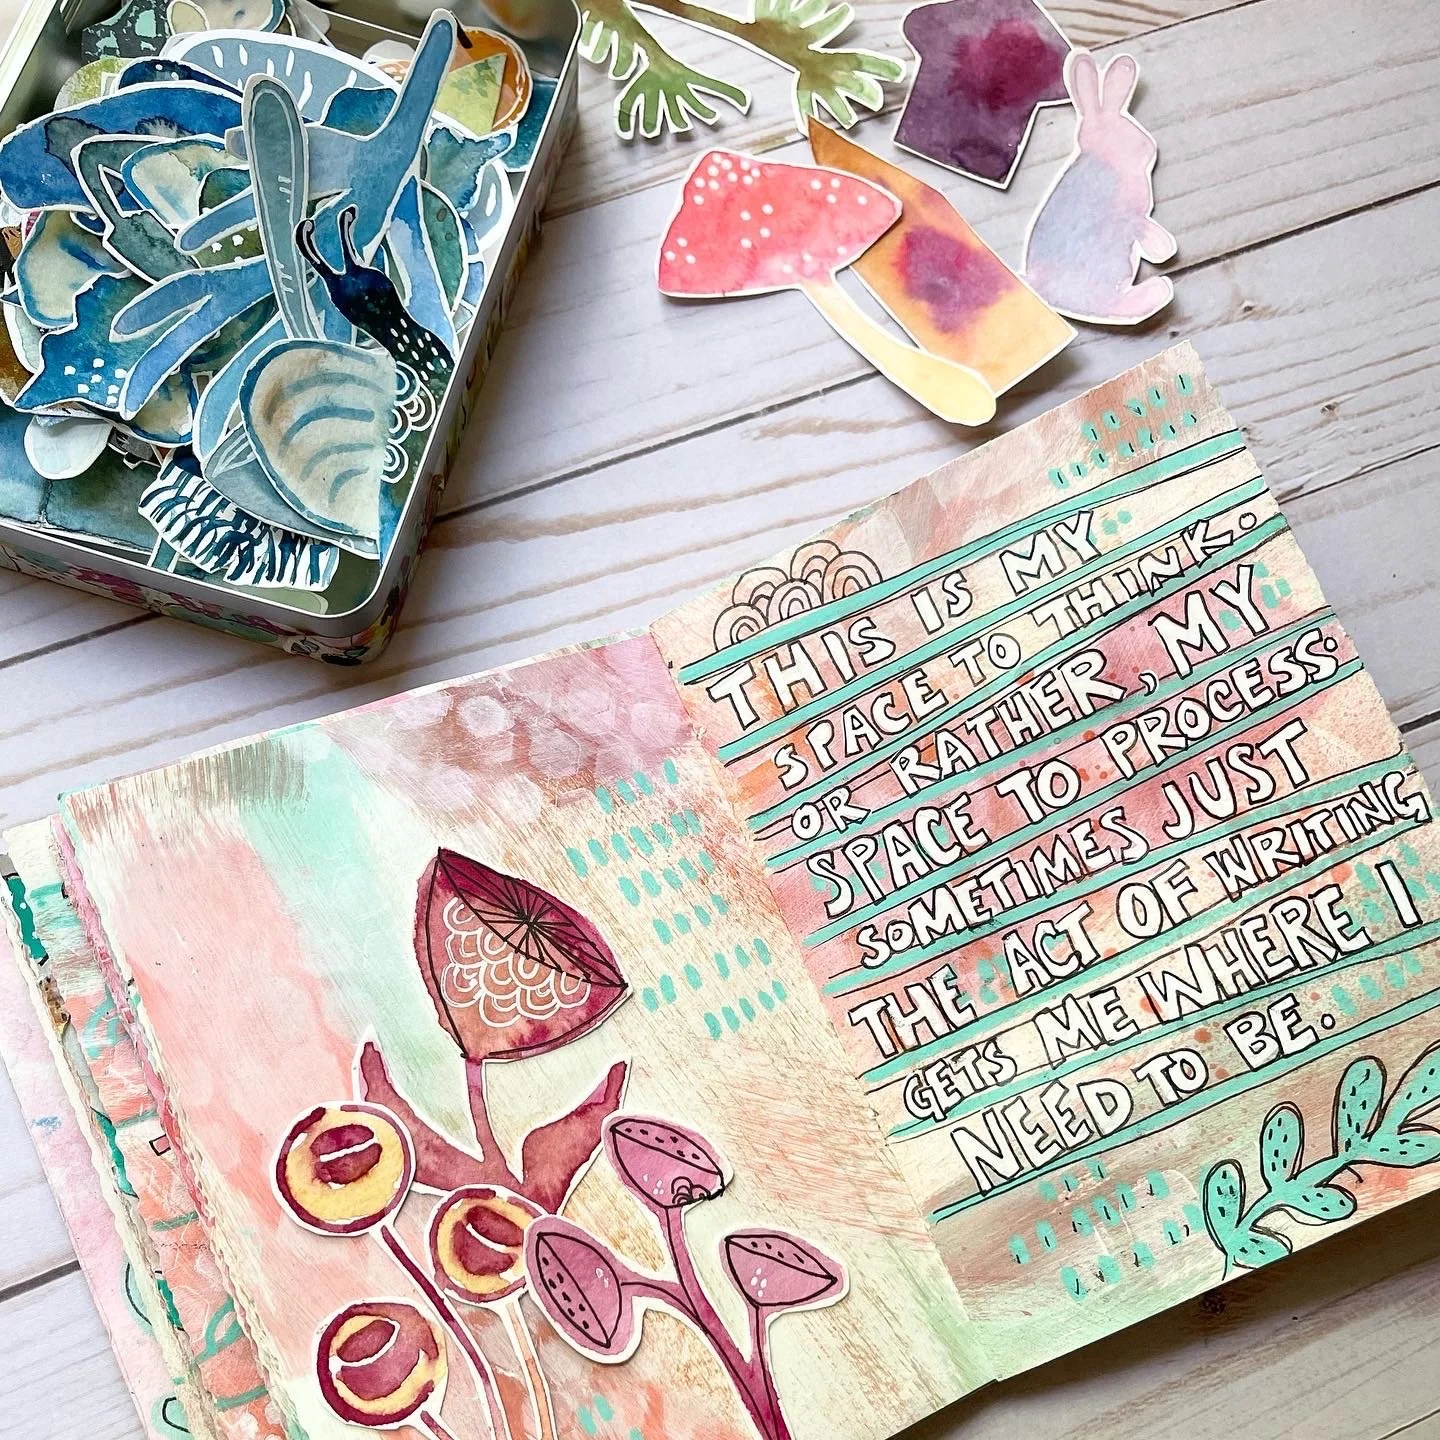 THIS IS MY
SPACE TO THINK.
OR RATHER, MY
SPACE TO PROCESS.
SOMETIMES JUST
THE ACT OF WRITING
GETS ME WHERE I
NEED TO BE.